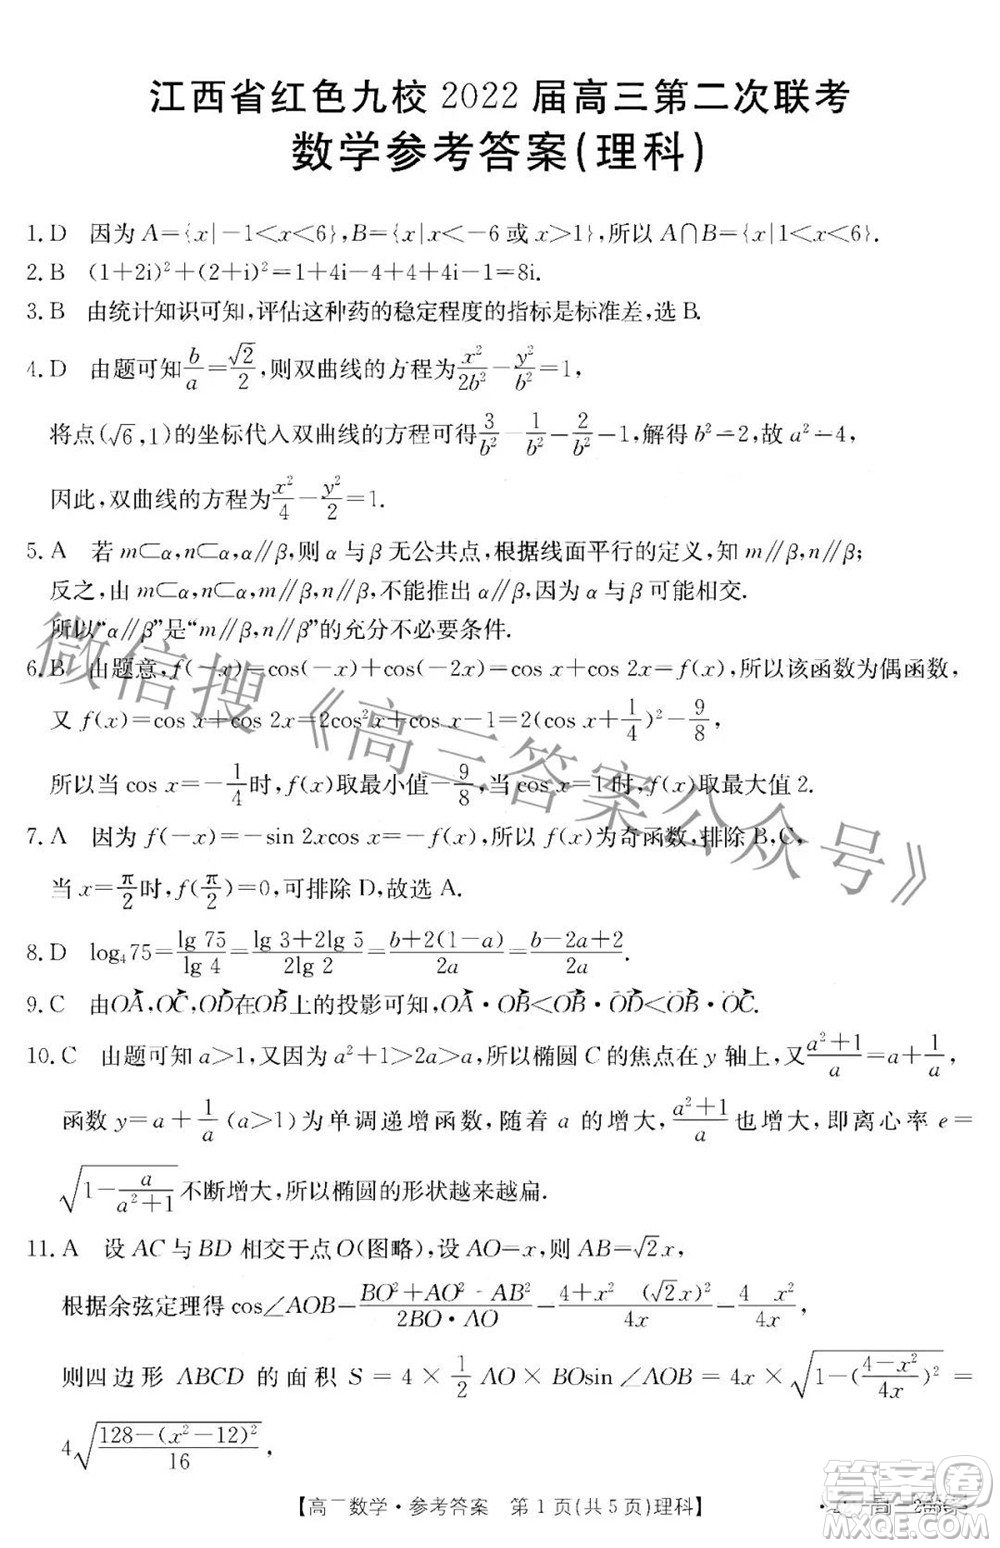 江西省红色九校 2022 届高三第二次联考
数学参考答案(理科)
1. D 因为 A={x|-1<x<6},B={x|x<-6 或 x>1},所以 A∩B={x|1<x<6}.
2. B (1+2i)²+(2+i)²=1+4i-4+4+4i-1=8i.
3. B 由统计知识可知,评估这种药的稳定程度的指标是标准差,选 B.
4. D 由题可知 b/a=√2/2,则双曲线的方程为 x²/2b²-y²/b²=1,
将点(√6,1)的坐标代入双曲线的方程可得 3/b²-1/b²=2/b²=1,解得 b²=2,故 a²=4,
因此,双曲线的方程为 x²/4-y²/2=1.
5. A 若 m⊂α,n⊂α,α∥β,则 α 与 β 无公共点,根据线面平行的定义,知 m∥β,n∥β;
反之,由 m⊂α,n⊂α,m∥β,n∥β,不能推出 α∥β,因为 α 与 β 可能相交.
所以“α∥β”是“m∥β,n∥β”的充分不必要条件.
6. B 由题意,f(-x)=cos(-x)+cos(-2x)=cos x+cos 2x=f(x),所以该函数为偶函数,
又 f(x)=cos x+cos 2x=2cos²x+cos x-1=2(cos x+1/4)²-9/8,
所以当 cos x=-1/4时,f(x)取最小值-9/8,当 cos x=1时,f(x)取最大值 2.
7. A 因为 f(-x)=-sin 2xcos x=-f(x),所以 f(x)为奇函数,排除 B,C,
当 x=π/2时,f(π/2)=0,可排除 D,故选 A.
8. D log₄75=lg 75/lg 4=(lg 3+2lg 5)/(2lg 2)=(b+2(1-a))/2a=(b-2a+2)/2a.
9. C 由OA,OC,OD在OB上的投影可知,OA·OB<OB·OD<OB·OC.
10. C 由题可知 a>1,又因为 a²+1>2a>a,所以椭圆 C 的焦点在 y 轴上,又(a²+1)/a=a+1/a,
函数 y=a+1/a(a>1)为单调递增函数,随着 a 的增大,(a²+1)/a也增大,即离心率 e=
√(1-a/(a²+1))不断增大,所以椭圆的形状越来越扁.
11. A 设 AC 与 BD 相交于点 O(图略),设 AO=x,则 AB=√2x,
根据余弦定理得 cos∠AOB=(BO²+AO²-AB²)/(2BO·AO)=(4+x²-(√2x)²)/4x=(4-x²)/4x,
则四边形 ABCD 的面积 S=4×1/2 AO×BOsin∠AOB=4x×√(1-((4-x²)/4x)²)=
4√((128-(x²-12)²)/16),
【高三数学·参考答案 第 1 页(共 5 页)理科】
微信搜《高三答案公众号》
答案圈
MXQE.COM